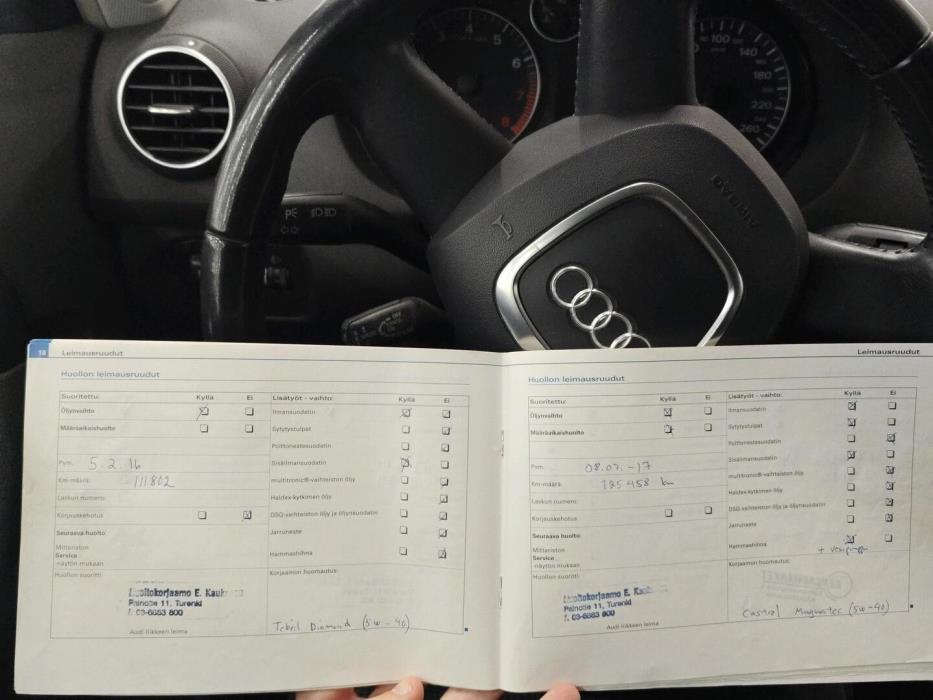 4
5
6
7
8
100
140
180
220
260
AIRBAG
18 Leimausruudut
Huollon leimausruudut
Suoritettu: Kyllä Ei
Öljynvaihto
Määräaikaishuolto
Pvm. 5.2.16
Km-määrä: 111802
Laskun numero:
Korjauskehotus
Seuraava huolto:
Mittariston
Service
-näytön mukaan
Huollon suoritti:
Huoltokorjaamo E. Kauk
Painotie 11, Turenki
T. 03-6883 800
Audi-liikkeen leima
Lisätyöt - vaihto: Kyllä Ei
Ilmansuodatin
Sytytystulpat
Polttonestesuodatin
Sisäilmansuodatin
multitronic®-vaihteiston öljy
Haldex-kytkimen öljy
DSG-vaihteiston öljy ja öljynsuodatin
Jarruneste
Hammashihna
Korjaamon huomautus:
Diamond (5w-40)
Leimausruudut
Huollon leimausruudut
Suoritettu: Kyllä Ei
Öljynvaihto
Määräaikaishuolto
Pvm. 08.07.-17
Km-määrä: 125458 km
Laskun numero:
Korjauskehotus
Seuraava huolto:
Mittariston
Service
-näytön mukaan
Huollon suoritti:
Huoltokorjaamo E. Kauk
Painotie 11, Turenki
T. 03-6883 800
Audi-liikkeen leima
Lisätyöt - vaihto: Kyllä Ei
Ilmansuodatin
Sytytystulpat
Polttonestesuodatin
Sisäilmansuodatin
multitronic®-vaihteiston öljy
Haldex-kytkimen öljy
DSG-vaihteiston öljy ja öljynsuodatin
Jarruneste
Hammashihna
+ vesipumppu
Korjaamon huomautus:
Castrol Magnatec (5w-40)